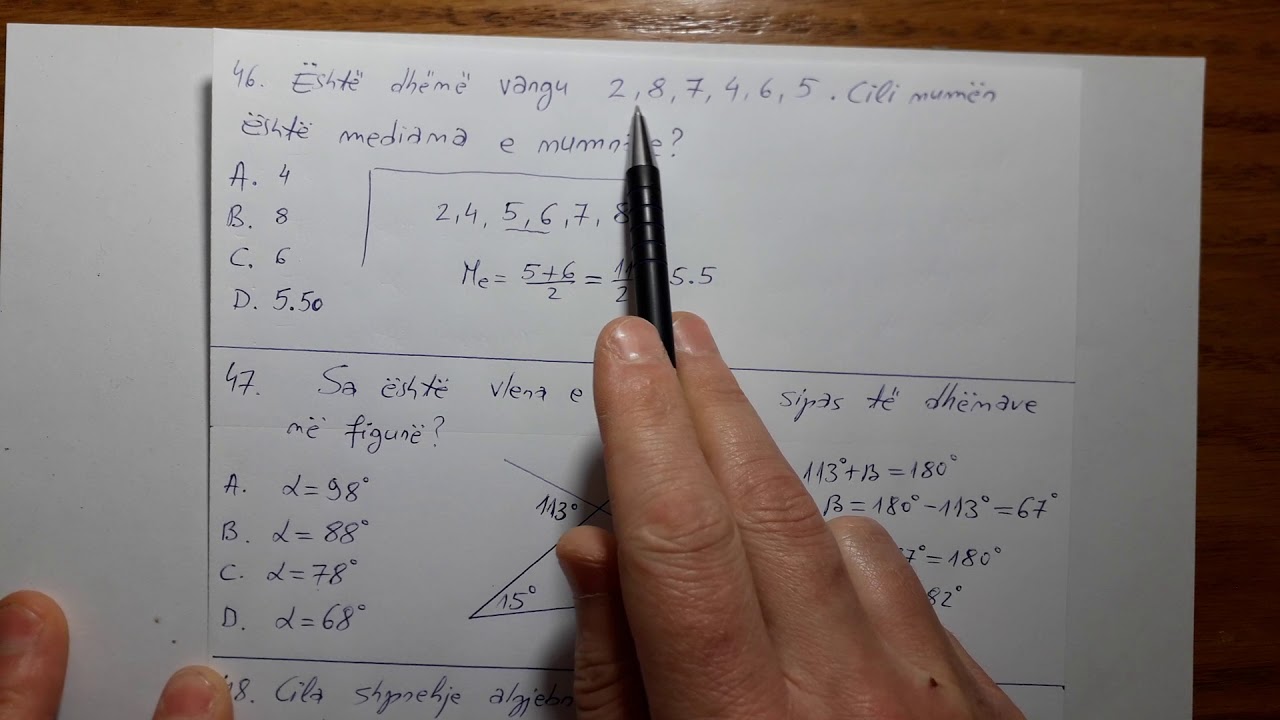 46. Është dhënë vargu 2, 8, 7, 4, 6, 5. Cili numër
është mediana e
A. 4
B. 8
C. 6
D. 5.50
2, 4, 5, 6, 7, 8
Me = 5+6/2 = 11/2 5.5
47. Sa është vlena e sipas të dhënave
në figurë?
A. α = 98°
B. α = 88°
C. α = 78°
D. α = 68°
113°
15°
113° + β = 180°
β = 180° - 113° = 67°
7° = 180°
82°
Cila shprehje